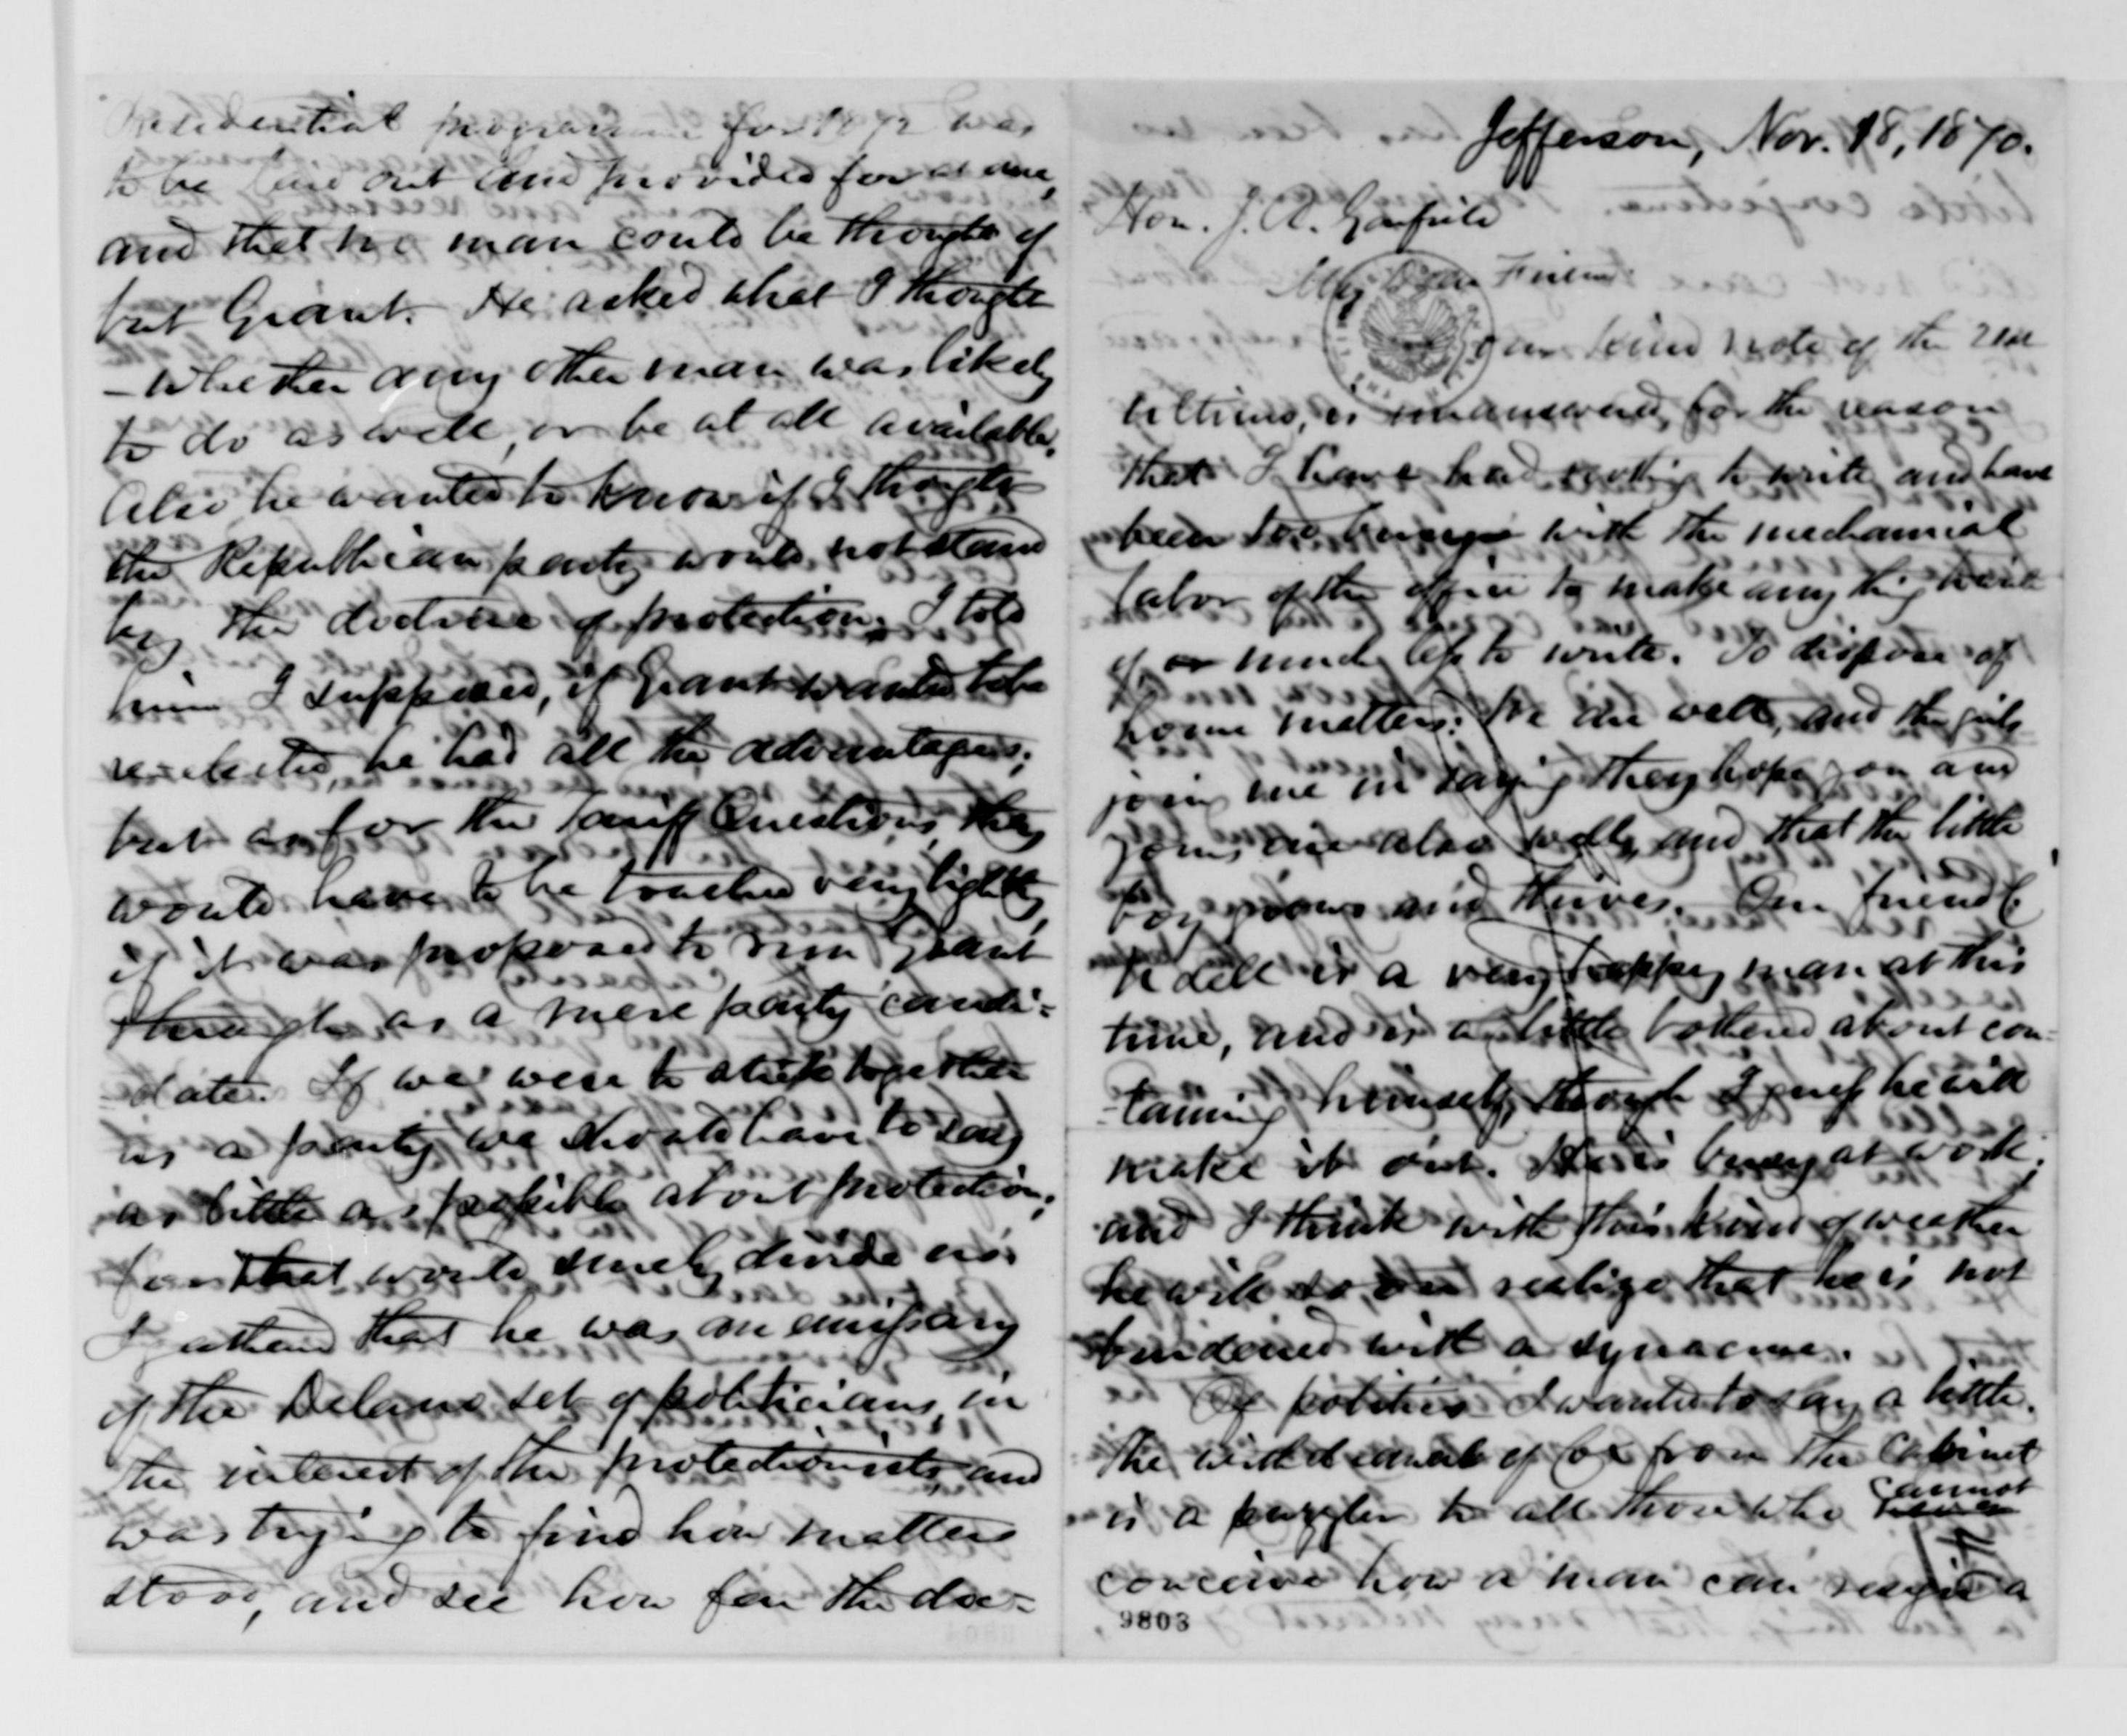 Jefferson, Nov. 18, 1870.
Hon. J. A. Garfield
My Dear Friend
Your kind note of the 21st
ultimo, is unanswered, for the reason
that I have had nothing to write and have
been too busy with the mechanical
labor of the office to make any thing
of or mind left to write. To dispose of
home matters: We are well, and the girls
join me in saying they hope you and
yours are also well, and that the little
boy grows and thrives. Our friend
is a very happy man at this
time, and is a little bothered about con-
taining himself, though I guess he will
make it out. He is busy at work;
and I think with this kind of weather
he will soon realize that he is not
burdened with a synecure.
Of politics I wanted to say a little.
The withdrawal of Cox from the Cabinet
is a puzzler to all those who cannot
conceive how a man can resign a
9803
Presidential programme for 1872 was
to be laid out and provided for at once,
and that no man could be thought of
but Grant. He asked what I thought
- whether any other man was likely
to do as well, or be at all available.
Also he wanted to know if I thought
the Republican party would not stand
by the doctrine of protection. I told
him I supposed, if Grant wanted to be
reelected, he had all the advantages;
but as for the Tariff Questions, they
would have to be touched very lightly
if it was proposed to run Grant
through as a mere party candi-
date. If we were to stick together
as a party, we should have to say
as little as possible about protection,
for that would surely divide us.
I gathered that he was an emissary
of the Delano set of politicians, in
the interest of the protectionists, and
was trying to find how matters
stood, and see how far the doc-